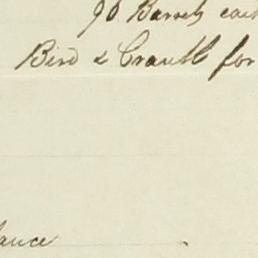 90 Barrels each
Bird & Crault for
lance